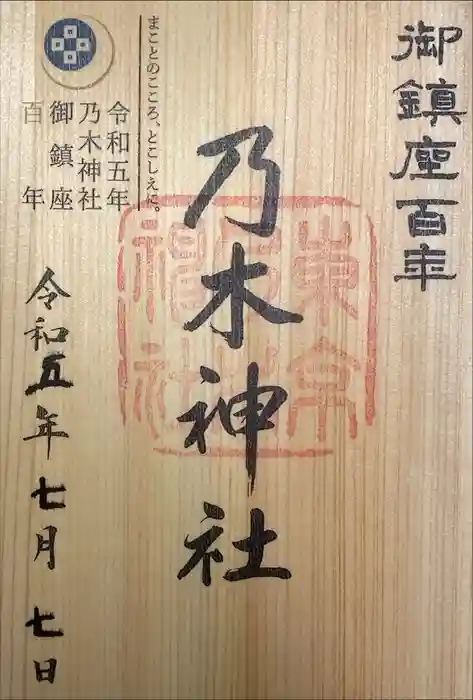 御鎮座百年
東京
乃木神社
まことのこころ、とこしえに。
令和五年
乃木神社
御鎮座
百年
令和五年七月七日